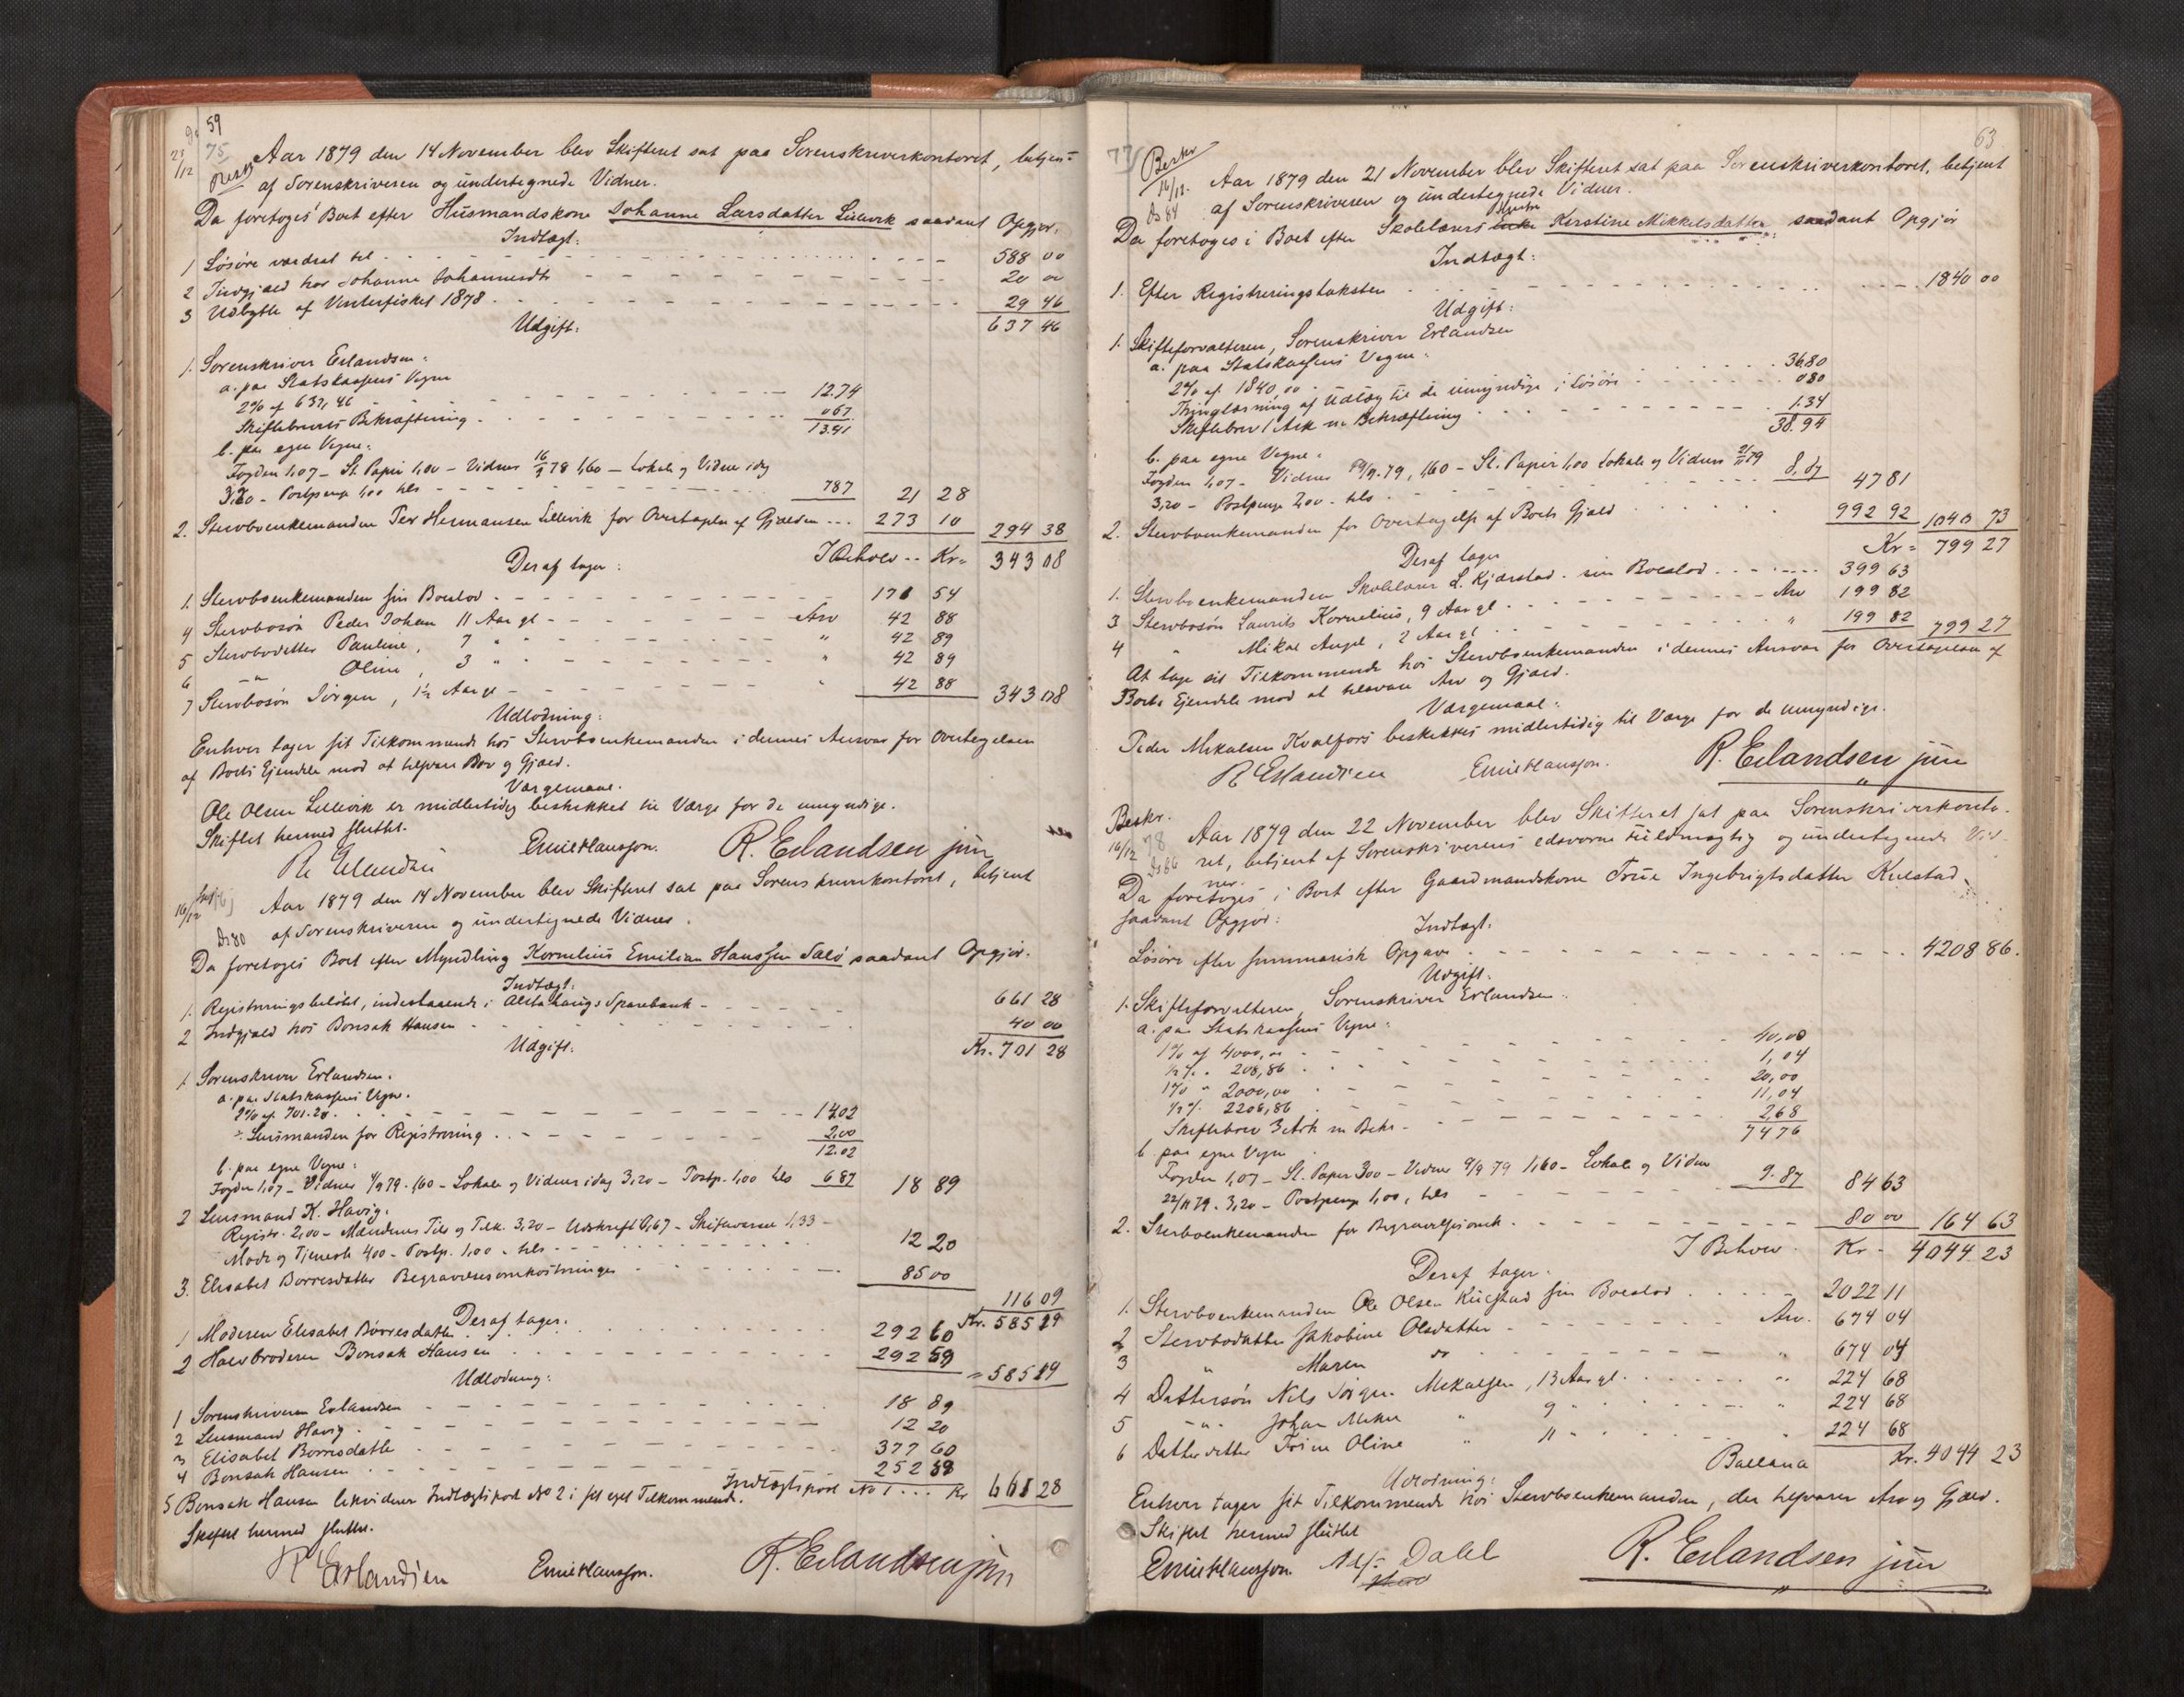 59
23/12 75
Beskr
Aar 1879 den 14 November blev Skifteret sat paa Sorenskriverkontoret, betjent
af Sorenskriveren og undertegnede Vidner.
Da foretoges Boet efter Husmandskone Johanne Larsdatter Lillevik saadant Opgjør.
Indtægt:
1 Løsøre værdsat til 588 00
2 Indgjæld hos Johanne Johannesdtr 20 00
3 Udbytte af Vinterfisket 1878 29 46
Udgift: 637 46
1. Sorenskriver Erlandsen:
a. paa Statskassens Vegne
2% af 637,46 12.74
Skiftebrevets Bekræftning 067
13.41
b. paa egne Vegne:
Fogden 1,07 – St. Papir 1,00 – Vidner 78 1,60 – Lokale og Vidne idag
3,20 – Postpenge 1,00 tils 787 21 28
2. Stervboenkemanden Peder Hermansen Lillevik for Overtagelse af Gjælden 273 10 294 38
I Behold Kr. 343 08
Deraf tager:
1. Stervboenkemanden sin Boeslod 171 54
4 Stervbosøn Peder Johan 11 Aar gl Arv 42 88
5 Stervbodatter Pauline, 7 " " 42 89
6 –"– Oline, 3 " " 42 89
7 Stervbosøn Jørgen, 1½ Aar gl " 42 88 343 08
Udlodning:
Enhver tager sit Tilkommende hos Stervboenkemanden i dennes Ansvar for Overtagelsen
af Boets Ejendele mod at tilsvare Arv og Gjæld.
Værgemaal.
Ole Olsen Lillevik er midlertidig beskikket til Værge for de umyndige.
Skiftet hermed sluttet.
R Erlandsen Emil Hansson. R. Erlandsen jun
16/12 76
Ds 80
Aar 1879 den 14 November blev Skifteret sat paa Sorenskriverkontoret, betjent
af Sorenskriveren og undertegnede Vidner.
Da foretoges Boet efter Myndling Kornelius Emilian Hanssen Salø saadant Opgjør.
Indtægt:
1. Registreringsbeløbet, indestaaende i Alstahaugs Sparebank 661 28
2 Indgjæld hos Bonsak Hansen 40 00
Udgift: Kr. 701 28
1. Sorenskriver Erlandsen.
a. paa Statskassens Vegne.
2% af 701.28 14.02
÷ Lensmanden for Registrering 2,00
12.02
b. paa egne Vegne:
Fogden 1,07 – Vidner 79. 1,60 – Lokale og Vidner idag 3,20 – Postp. 1,00 tils 687 18 89
2 Lensmand K. Havig.
Registr. 2,00 – Mændenes Tils og Tilk. 3,20 – Udskrift 0,67 – Skifteværens 1,33 –
Møde og Tjeneste 4,00 – Postp. 1,00 – tils 12 20
3. Elisabet Børresdatter Begravelsesomkostninger 85 00
116 09
Deraf tager. Kr. 585 19
1 Moderen Elisabet Børresdatter 292 60
2 Halvbroderen Bonsak Hansen 292 59 = 585 19
Udlodning:
1 Sorenskriveren Erlandsen 18 89
2 Lensmand Havig 12 20
3 Elisabet Børresdatter 377 60
4 Bonsak Hansen 252 59
Indtægtspost No 1 Kr 661 28
5 Bonsak Hansen likviderer Indtægtspost No 2 i sit eget Tilkommende.
Skiftet hermed sluttet.
R Erlandsen Emil Hansson. R. Erlandsen jun
63
77
Beskr
16/12.
Ds 84
Aar 1879 den 21 November blev Skifteret sat paa Sorenskriverkontoret, betjent
af Sorenskriveren og undertegnede Vidner.
Da foretoges i Boet efter Skolelærers Enke Hustru Kirstine Mikkelsdatter saadant Opgjør
Indtægt:
1. Efter Registreringstaksten 1840 00
Udgift:
1. Skifteforvalteren, Sorenskriver Erlandsen
a. paa Statskassens Vegne:
2% af 1840,00 36.80
Thinglæsning af Udlæg til de umyndige i Løsøre 080
Skiftebrev 1 Ark m Bekræftning 1.34
38.94
b. paa egne Vegne:
Fogden 1,07 – Vidner 79, 1,60 – St. Papir 1,00 Lokale og Vidner 21/11 79
3,20 – Postpenge 2,00 – tils 8.87 47 81
2. Stervboenkemanden for Overtagelse af Boets Gjæld 992 92 1040 73
Kr = 799 27
Deraf tager
1. Stervboenkemanden Skolelærer L. Kjærstad sin Boeslod 399 63
3 Stervbosøn Laurits Kornelius, 9 Aar gl Arv 199 82
4 " Mikal Angel, 2 Aar gl " 199 82 799 27
At tage sit Tilkommende hos Stervboenkemanden i dennes Ansvar for Overtagelsen af
Boets Ejendele mod at tilsvare Arv og Gjæld.
Værgemaal:
Peder Mikalsen Kvalfors beskikkes midlertidig til Værge for de umyndige.
R Erlandsen Emil Hansson. R. Erlandsen jun
Beskr.
16/12 78
Ds 86
Aar 1879 den 22 November blev Skifteret sat paa Sorenskriverkonto-
ret, betjent af Sorenskriverens edsvorne Fuldmægtig og undertegnede Vid-
ner.
Da foretoges i Boet efter Gaardmandskone Trine Ingebrigtsdatter Kulstad
saadant Opgjør:
Indtægt:
Løsøre efter summarisk Opgave 4208 86.
Udgift.
1. Skifteforvalteren, Sorenskriver Erlandsen:
a. paa Statskassens Vegne:
1% af 4000,00 40,00
½% " 208,86 1,04
1% " 2000,00 20,00
½% " 2208,86 11,04
Skiftebrev 3 Ark m Bekr. 2,68
74 76
b. paa egne Vegne
Fogden 1,07 – St. Papir 3,00 – Vidner 79 1,60 – Lokale og Vidner
22/11 79. 3,20 – Postpenge 1,00, tils 9.87 84 63
2. Stervboenkemanden for Begravelsesomk. 80 00 164 63
I Behold Kr 4044 23
Deraf tager.
1. Stervboenkemanden Ole Olsen Kulstad sin Boeslod 2022 11
2 Stervbodatter Jakobine Olsdatter Arv. 674 04
3 " Maren do " 674 04
4 Dattersøn Nils Jørgen Mikalsen, 13 Aar gl. " 224 68
5 –"– Johan Mikal " 9 " " 224 68
6 Datterdatter Trine Oline " 11 " " 224 68
Ballance Kr. 4044 23
Udlodning:
Enhver tager sit Tilkommende hos Stervboenkemanden, der tilsvarer Arv og Gjæld.
Skiftet hermed sluttet
Emil Hansson. Alf. Dahl R. Erlandsen jun